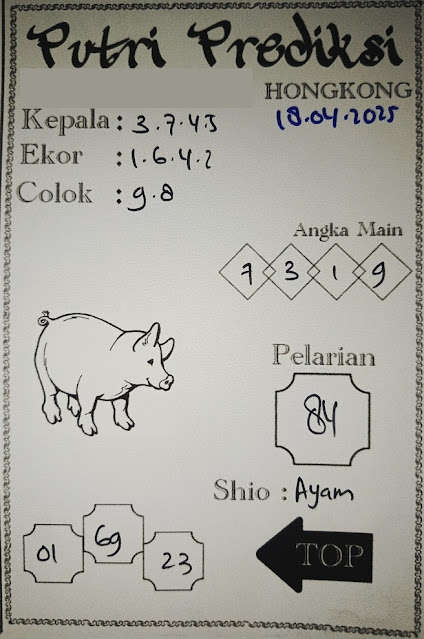 Putri Prediksi
HONGKONG
18.04.2025
Kepala : 3.7.4.5
Ekor : 1.6.4.2
Colok : 9.8
Angka Main
7 3 1 9
Pelarian
84
Shio : Ayam
01 69 23
TOP